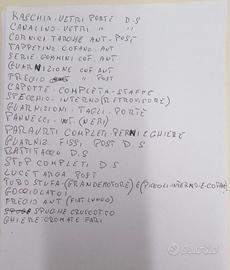 RASCHIA-VETRI PORTE D.S
CANALINO-VETRI " "
CORNICI TARGHE ANT-POST
TAPPETINO-COFANO ANT
SERIE-GOMMINI COF ANT
GUARNIZIONE COF ANT
FREGIO " POST
CAPOTTE COMPLETA-STAFFE
SPECCHIO-INTERNO (RETROVISORE)
GUARNIZIONI-TAGLI-PORTE
PANNELLI-INT. (NERI)
PARAURTI COMPLETI-PERNI E GHIERE
GUARNIZ. FISSI POST D.S
BATTITACCO D.S
STOP COMPLETI D.S
LUCE TARGA POST
TUBO STUFA-(GRANDE MOTORE) E (PICCOLI-INTERNO-E-
GOCCIOLATOI
FREGIO ANT (LUNGO)
SPUGNE CRUSCOTTO
GHIERE CROMATE FARI
Subito